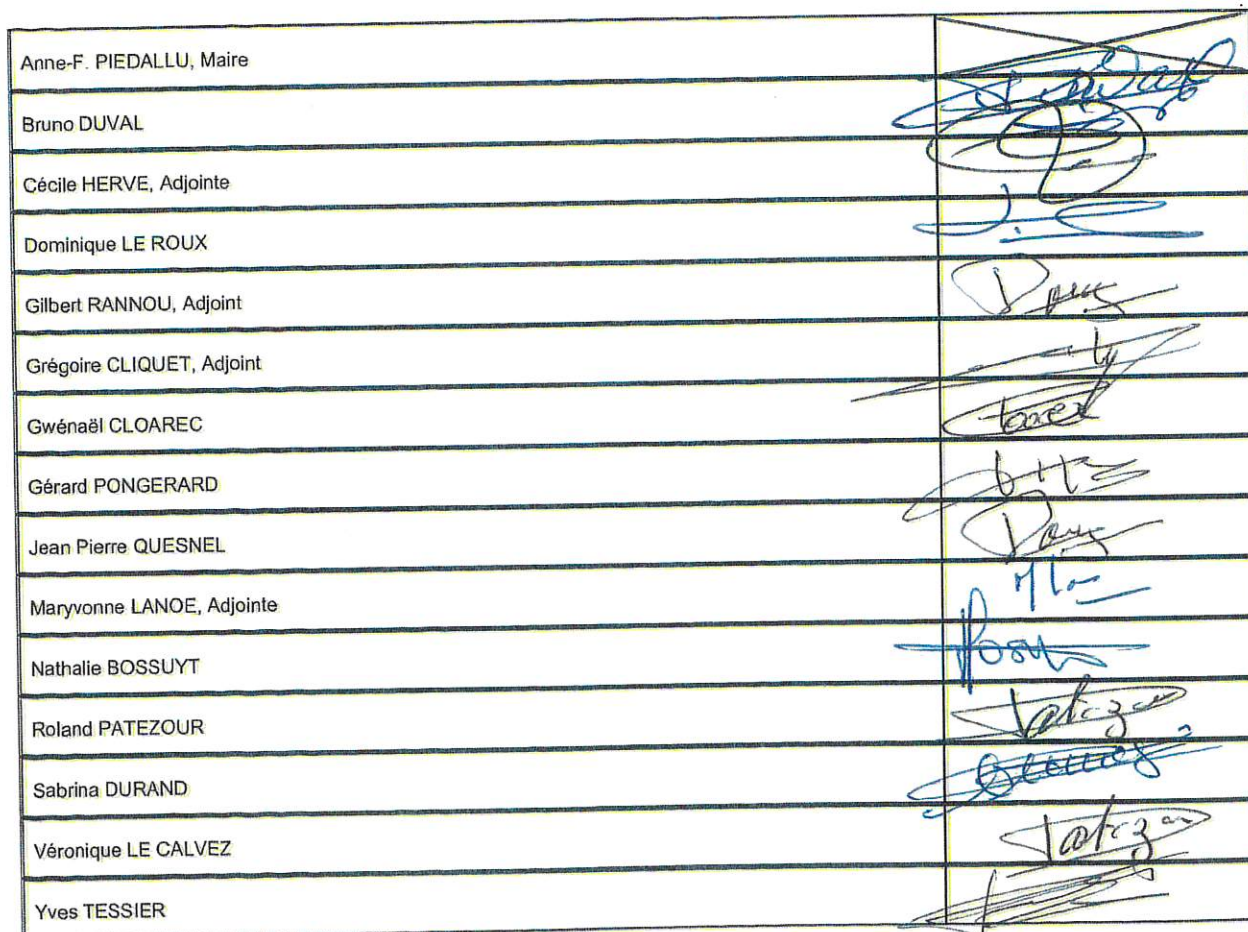 Anne-F. PIEDALLU, Maire
Bruno DUVAL
Cécile HERVE, Adjointe
Dominique LE ROUX
Gilbert RANNOU, Adjoint
Grégoire CLIQUET, Adjoint
Gwénaël CLOAREC
Gérard PONGERARD
Jean Pierre QUESNEL
Maryvonne LANOE, Adjointe
Nathalie BOSSUYT
Roland PATEZOUR
Sabrina DURAND
Véronique LE CALVEZ
Yves TESSIER